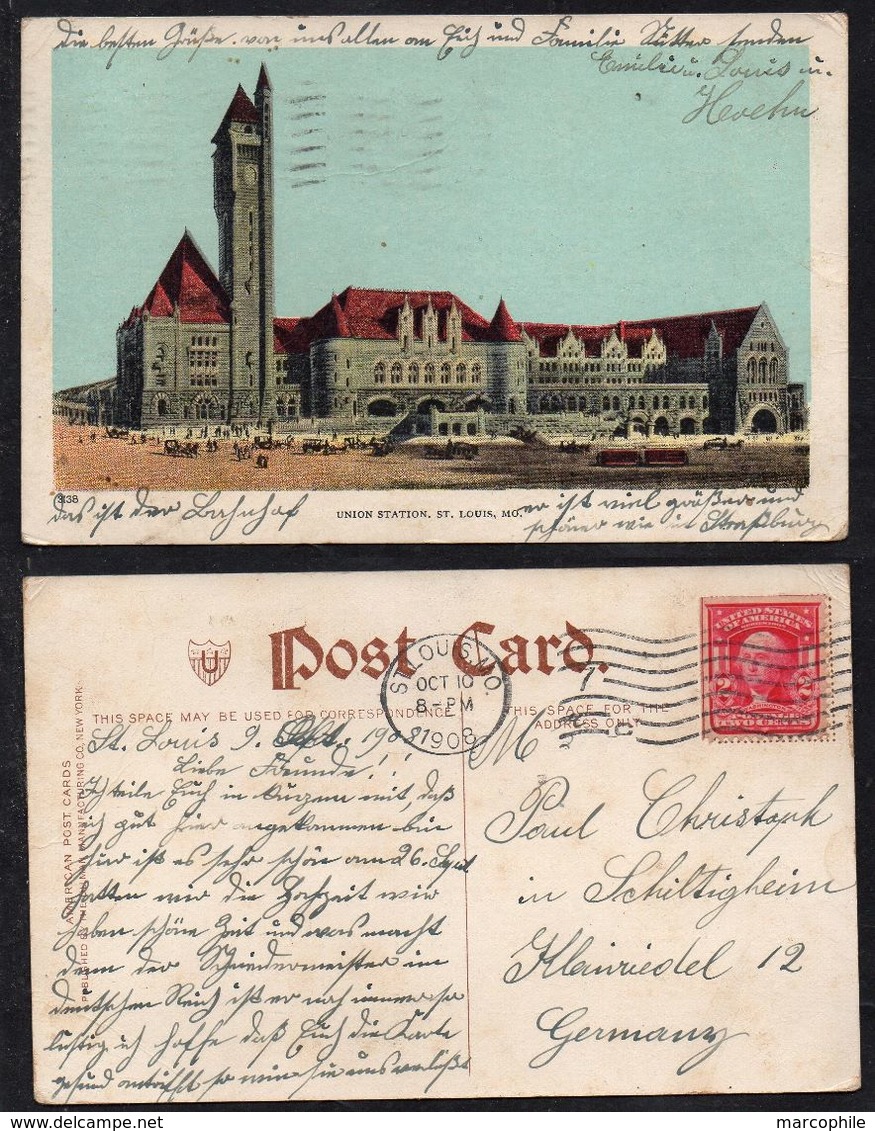 Die besten Grüße von uns allen an Euch und Familie Sütter senden
Emilie u. Louis u.
Hoehn
3138
das ist der Bahnhof
UNION STATION, ST. LOUIS, MO.
er ist viel größer und
schöner wie in Straßburg
U
Post Card.
THIS SPACE MAY BE USED FOR CORRESPONDENCE
THIS SPACE FOR THE
ADDRESS ONLY
ST. LOUIS, MO.
OCT 10
8-PM
1908
7
UNITED STATES
OF AMERICA
2 2
TWO CENTS
AMERICAN POST CARDS
MANUFACTURING CO. NEW YORK.
PUBLISHED BY
St. Louis 9. 1908
Liebe Freunde!!
Ich teile Euch in Kurzem mit, daß
ich gut hier angekommen bin
hier ist es sehr schön am 26. Sept
hatten wir die Hochzeit wir
haben schöne Zeit und was macht
denn der Schneidermeister im
deutschen Reich ist er noch immer so
lustig ich hoffe daß Euch die Karte
gesund antrifft so wie sie uns verläßt
M
Paul Christoph
in Schiltigheim
12
Germany
marcophile